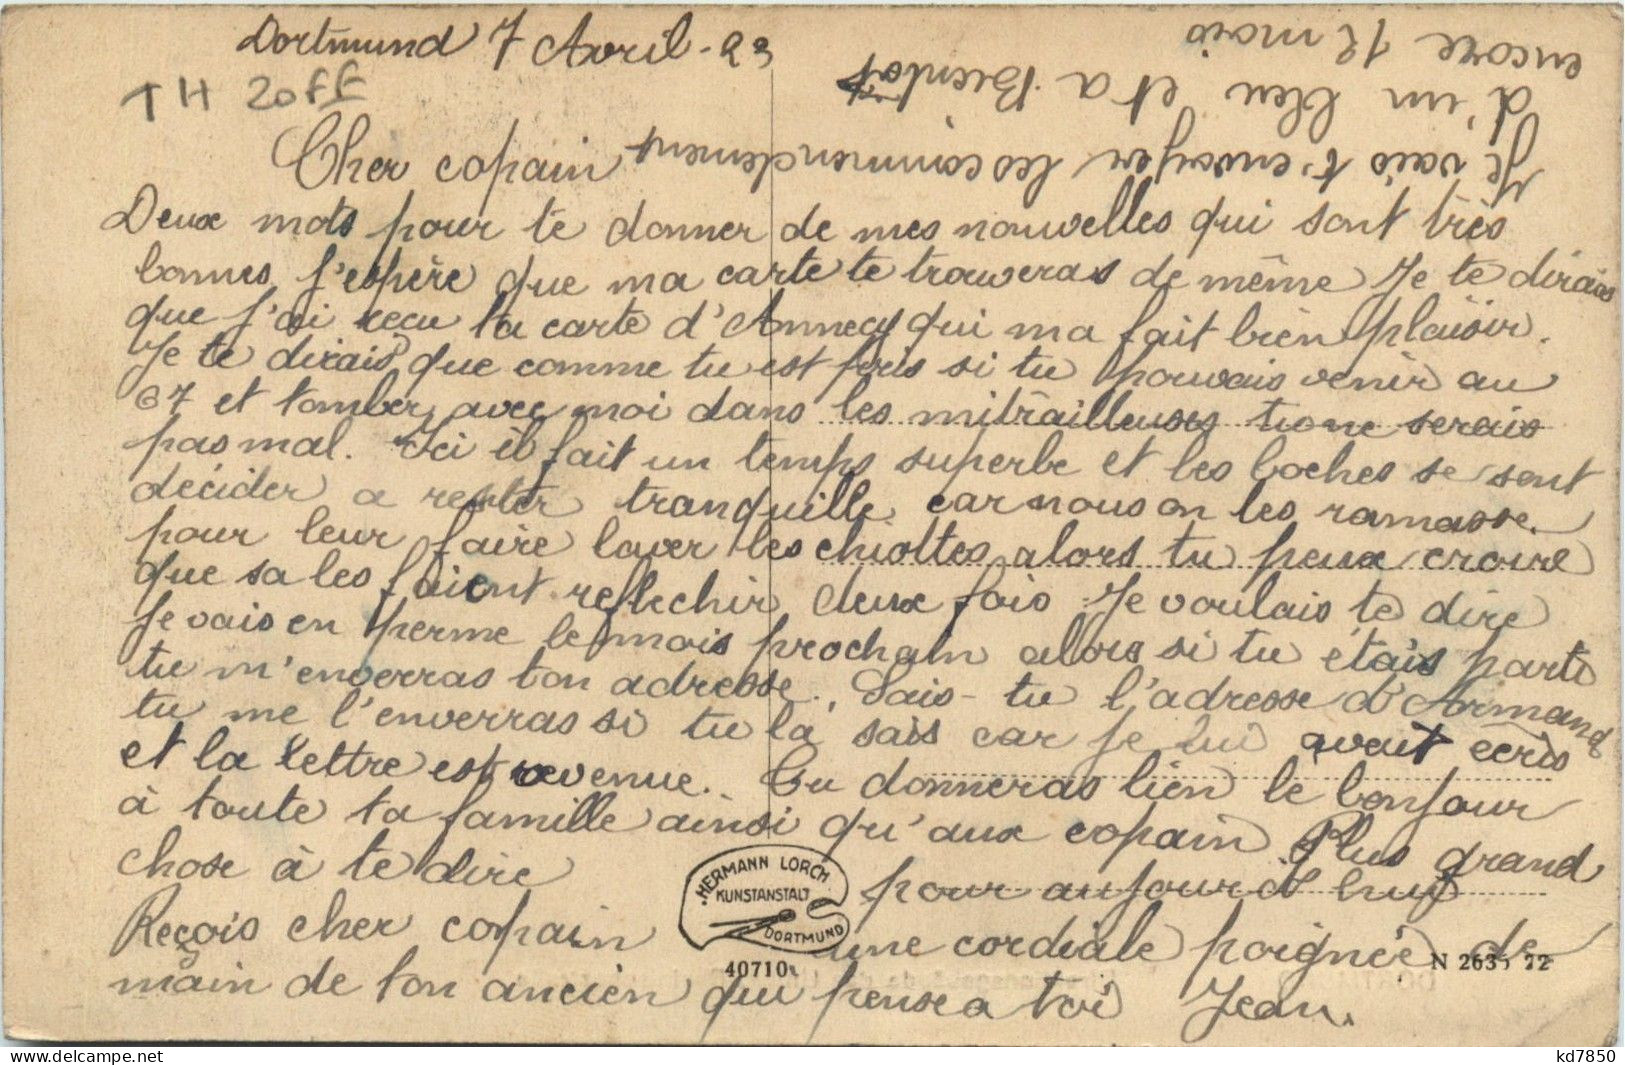 Dortmund 7 Avril - 23
TH 20FF
Cher copain
Deux mots pour te donner de mes nouvelles qui sont très
bonnes, j'espère que ma carte te trouveras de même Je te dirais
que j'ai reçu ta carte d'Annecy qui ma fait bien plaisir.
Je te dirais que comme tu est pris si tu pouvais venir au
67 et tomber avec moi dans les mitrailleuses tu ne serais
pas mal. Ici il fait un temps superbe et les boches se sont
décider a rester tranquille car nous on les ramasse
pour leur faire laver les chiottes alors tu peux croire
que sa les faient reflechir deux fois Je voulais te dire
Je vais en perme le mois prochain alors si tu étais parti
tu m'enverras ton adresse. Sais-tu l'adresse d'Armand
tu me l'enverras si tu la sais car je lui avait ecris
et la lettre est revenue. Tu donneras bien le bonjour
à toute ta famille ainsi qu'aux copain Plus grand
chose à te dire pour aujourd'hui
Reçois cher copain une cordiale poignée de
main de ton ancien qui pense a toi Jean.
Je vais t'envoyer les commenclement
d'un bleu et a Bientot
encore 12 mois
HERMANN LORCH
KUNSTANSTALT
DORTMUND
40710
N 2635 72
kd7850